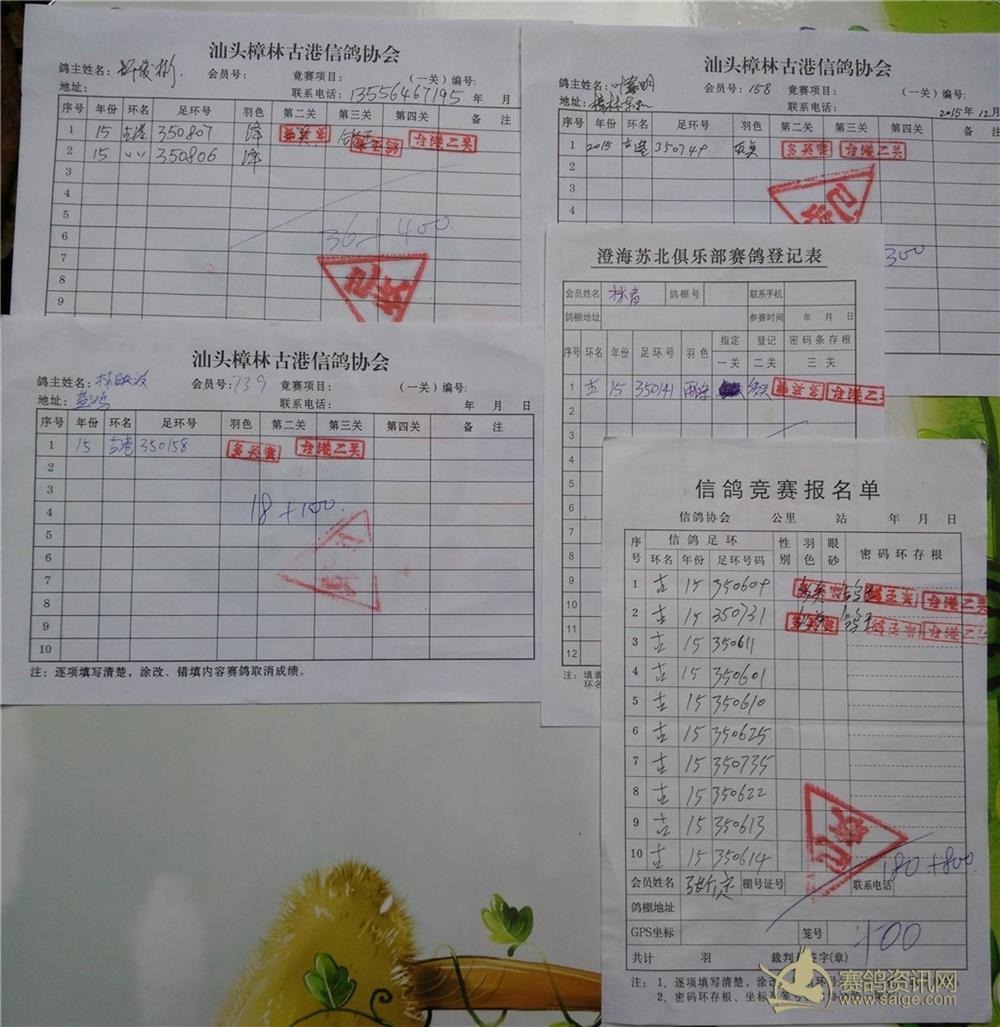 汕头樟林古港信鸽协会
鸽主姓名: 会员号: 竟赛项目: (一关)编号:
地址: 联系电话:13556467195 年 月
序号 年份 环名 足环号 羽色 第二关 第三关 第四关 备 注
1 15 古港 350807 泽 多关赛 鸽王赛 古港二关
2 15 〃 350806 泽
3
4
5
6 36+400
7 已收
8
9
汕头樟林古港信鸽协会
鸽主姓名: 会员号:158 竟赛项目: (一关)编号:
地址: 联系电话: 2015年12月
序号 年份 环名 足环号 羽色 第二关 第三关 第四关 备 注
1 2015 古港 350749 多关赛 古港二关
2
3 已收
4
300
汕头樟林古港信鸽协会
鸽主姓名:林映波 会员号:139 竟赛项目: (一关)编号:
地址: 联系电话: 年 月 日
序号 年份 环名 足环号 羽色 第二关 第三关 第四关 备 注
1 15 古港 350158 多关赛 古港二关
2
3
4 18+100
5
6
7
8
9
10
注:逐项填写清楚,涂改、错填内容赛鸽取消成绩。
澄海苏北俱乐部赛鸽登记表
会员姓名 林青 鸽棚号 联系手机
鸽棚地址 参赛时间 年 月 日
序号 环名 年份 足环号 羽色 指定一关 登记二关 密码条存根三关
1 古 15 350141 雨 多关赛 古港二关
2
3
4
5
6
7
8
9
10
11
12
信鸽竞赛报名单
信鸽协会 公里 站 年 月 日
序号 信鸽足环 性别 羽色 眼砂 密码环存根
环名 年份 足环号码
1 古 15 350604 多关赛 鸽王 鸽王赛 古港二关
2 古 15 350731 多关赛 鸽王 鸽王赛 古港二关
3 古 15 350611
4 古 15 350601
5 古 15 350610
6 古 15 350625
7 古 15 350735
8 古 15 350622
9 古 15 350613 已收
10 古 15 350614 180+800
会员姓名 棚号证号 联系电话
鸽棚地址
GPS坐标 笼号 400
共计 羽 裁判 签字(章)
注: 1、逐项填写清楚,涂
2、密码环存根、坐标
赛鸽资讯网
www.saige.com